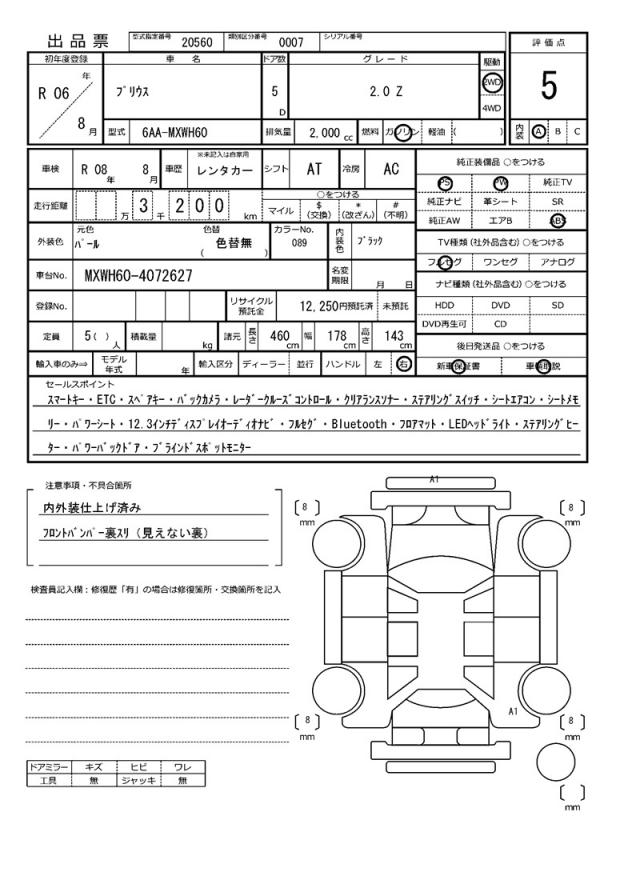 出品票 型式指定番号 20560 類別区分番号 0007 シリアル番号
評価点
5
初年度登録 車名 ドア数 グレード 駆動
R 06 年 8 月 プリウス 5 D 2.0 Z 2WD 4WD
型式 6AA-MXWH60 排気量 2,000 cc 燃料 ガソリン 軽油 ( ) 内装 A B C
車検 R 08 年 8 月 車歴 ※未記入は自家用 レンタカー シフト AT 冷房 AC
純正装備品 ○をつける
PS PW 純正TV
純正ナビ 革シート SR
純正AW エアB ABS
走行距離 万 3 千 2 0 0 km
○をつける
マイル $(交換) *(改ざん) #(不明)
TV種類(社外品含む)○をつける
フルセグ ワンセグ アナログ
外装色 元色 パール 色替 ( 色替無 ) カラーNo. 089 内装色 ブラック
ナビ種類(社外品含む)○をつける
HDD DVD SD
DVD再生可 CD
車台No. MXWH60-4072627 名変期限 月 日
登録No. リサイクル預託金 12,250円預託済 未預託
定員 5( ) 人 積載量 kg 諸元 長さ 460 cm 幅 178 cm 高さ 143 cm
後日発送品 ○をつける
新車保証書 車輌取説
輸入車のみ⇒ モデル年式 年 輸入区分 ディーラー 並行 ハンドル 左 右
セールスポイント
スマートキー・ETC・スペアキー・バックカメラ・レーダークルーズコントロール・クリアランスソナー・ステアリングスイッチ・シートエアコン・シートメモ
リー・パワーシート・12.3インチディスプレイオーディオナビ・フルセグ・Bluetooth・フロアマット・LEDヘッドライト・ステアリングヒー
ター・パワーバックドア・ブラインドスポットモニター
注意事項・不具合箇所
内外装仕上げ済み
フロントバンパー裏スリ(見えない裏)
検査員記入欄:修復歴「有」の場合は修復箇所・交換箇所を記入
A1
8 mm
8 mm
8 mm
A1
8 mm
mm
ドアミラー キズ ヒビ ワレ
工具 無 ジャッキ 無